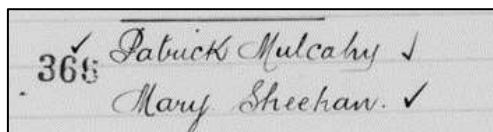 368 ✓ Patrick Mulcahy ✓
Mary Sheehan. ✓